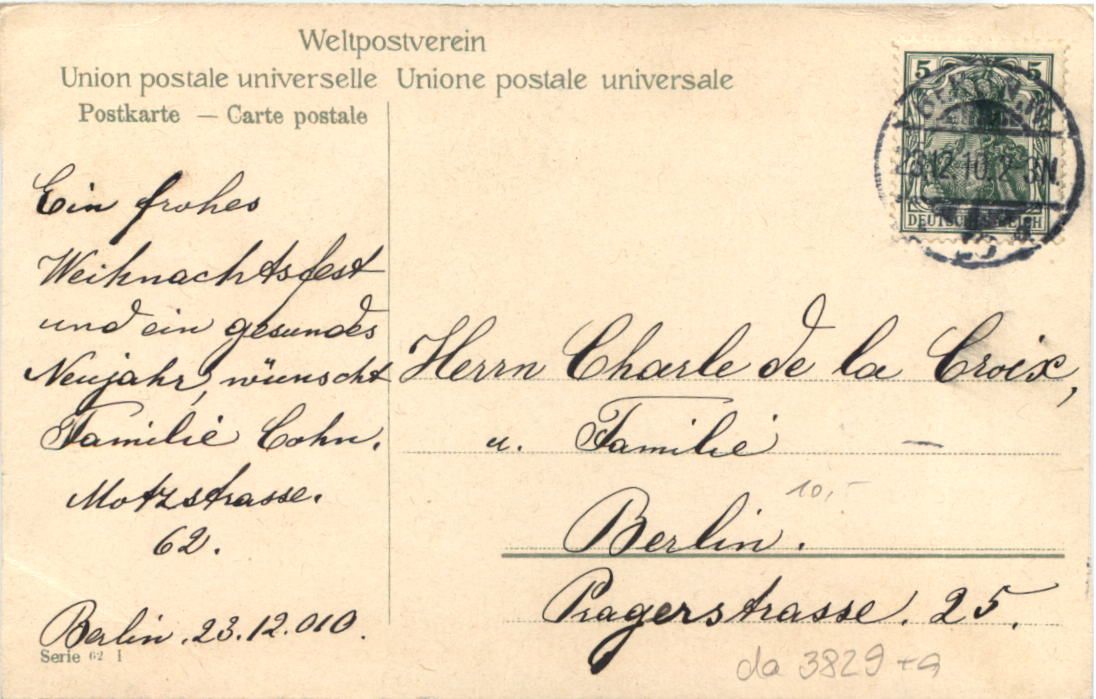 Weltpostverein
Union postale universelle Unione postale universale
Postkarte — Carte postale
5 5
DEUTSCHES REICH
BERLIN.W.
23.12.10.2-3N.
Ein frohes
Weihnachtsfest
und ein gesundes
Neujahr, wünscht
Familie Cohn.
Motzstrasse.
62.
Berlin. 23.12.010.
Serie 62 I
Herrn Charle de la Croix,
u. Familie —
10,-
Berlin.
Pragerstrasse. 25.
da 3829 +a